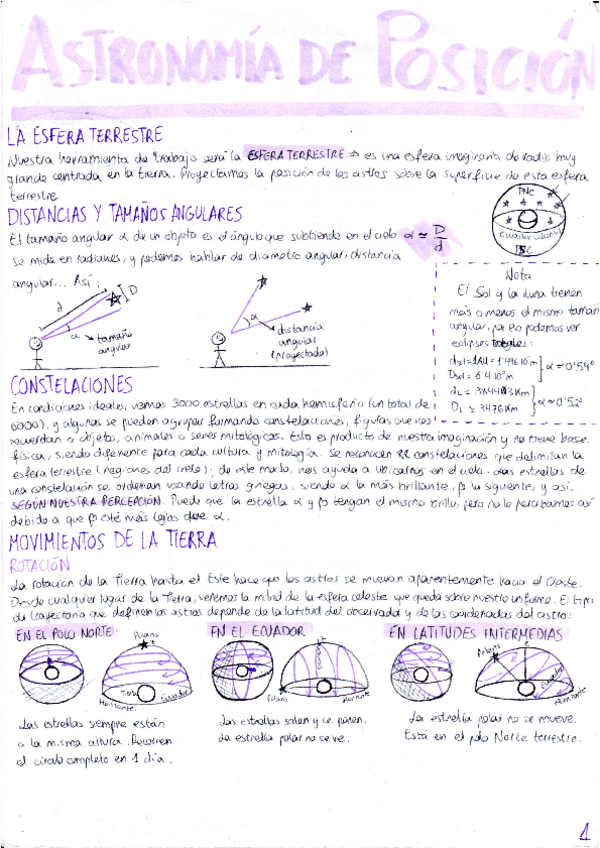 ASTRONOMÍA DE POSICIÓN
LA ESFERA TERRESTRE
Nuestra herramienta de trabajo será la ESFERA TERRESTRE → es una esfera imaginaria de radio muy
grande centrada en la tierra. Proyectamos la posición de los astros sobre la superficie de esta esfera
terrestre
PNC
Ecuador celeste
PSC
DISTANCIAS Y TAMAÑOS ANGULARES
El tamaño angular α de un objeto es el ángulo que subtiende en el cielo α ≈ D/d
se mide en radianes, y podemos hablar de diámetro angular, distancia
angular... Así:
d
D
α → tamaño
angular
α
distancia
angular
(proyectada)
Nota
El Sol y la Luna tienen
más o menos el mismo tamaño
angular, por eso podemos ver
eclipses totales:
α ≈ 0'54º
α ≈ 0'52º
CONSTELACIONES
En condiciones ideales, vemos 3000 estrellas en cada hemisferio (un total de
6000), y algunas se pueden agrupar formando constelaciones, figuras que nos
recuerdan a objetos, animales o seres mitológicos. Esto es producto de nuestra imaginación y no tiene base
física, siendo diferente para cada cultura y mitología. Se reconocen 88 constelaciones que delimitan la
esfera terrestre (regiones del cielo); de este modo, nos ayuda a ubicarnos en el cielo. Las estrellas de
una constelación se ordenan usando letras griegas, siendo α la más brillante, β la siguiente, y así.
SEGÚN NUESTRA PERCEPCIÓN. Puede que la estrella α y β tengan el mismo brillo, pero no lo percibamos así
debido a que β esté más lejos que α.
MOVIMIENTOS DE LA TIERRA
ROTACIÓN
La rotación de la Tierra hasta el Este hace que los astros se muevan aparentemente hacia el Oeste.
Desde cualquier lugar de la Tierra, veremos la mitad de la esfera celeste que queda sobre nuestro
El tipo
de trayectoria que definen los astros depende de la latitud del observador y de las coordenadas del astro:
EN EL POLO NORTE:
Polaris
Tierra
Ecuador
Horizonte
Las estrellas siempre están
a la misma altura. Recorren
el círculo completo en 1 día.
EN EL ECUADOR
Polaris
Horizonte
Las estrellas salen y se ponen.
La estrella polar no se ve.
EN LATITUDES INTERMEDIAS
Polaris
Ecuador
Horizonte
La estrella polar no se mueve.
Está en el polo Norte terrestre.
1